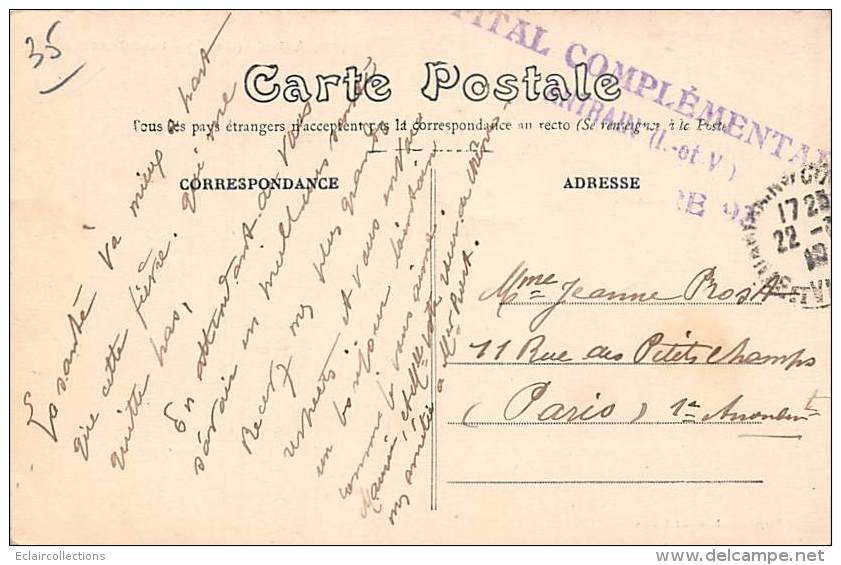 35
Carte Postale
Tous les pays étrangers n'acceptent pas la correspondance au recto (Se renseigner à la Poste)
CORRESPONDANCE
ADRESSE
PITAL COMPLÉMENTAI
(I.-et-V)
RE
17
22
La santé va mieux a part
que cette fièvre. qui me
quitte pas,
En attendant de vous
savoir en meilleure santé
Recevez mes plus grands
respects et vous envoie
un bonjour lointain
comme je vous aime.
mes amitiés a
Mme Jeanne Prost
11 Rue des Petits Champs
(Paris) 1er Arrondt
Eclaircollections
www.delcampe.net